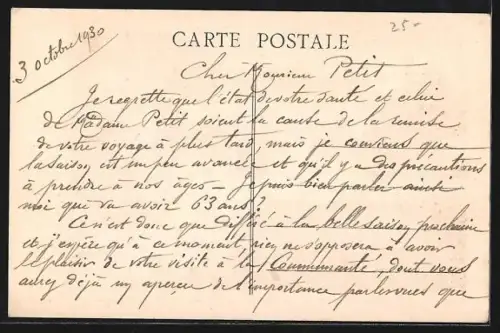 25-
3 octobre 1930
CARTE POSTALE
Cher Monsieur Petit
Je regrette que l'état de votre santé et celui
de Madame Petit soient la cause de la remise
de votre voyage à plus tard, mais je conviens que
la saison est un peu avancée et qu'il y a des précautions
à prendre à nos âges — Je puis bien parler ainsi
moi qui va avoir 63 ans?
Ce n'est donc que différé à la belle saison prochaine
et j'espère qu'à ce moment, rien ne s'opposera à avoir
le plaisir de votre visite à la Communauté, dont vous
avez déjà un aperçu de l'importance par les vues que